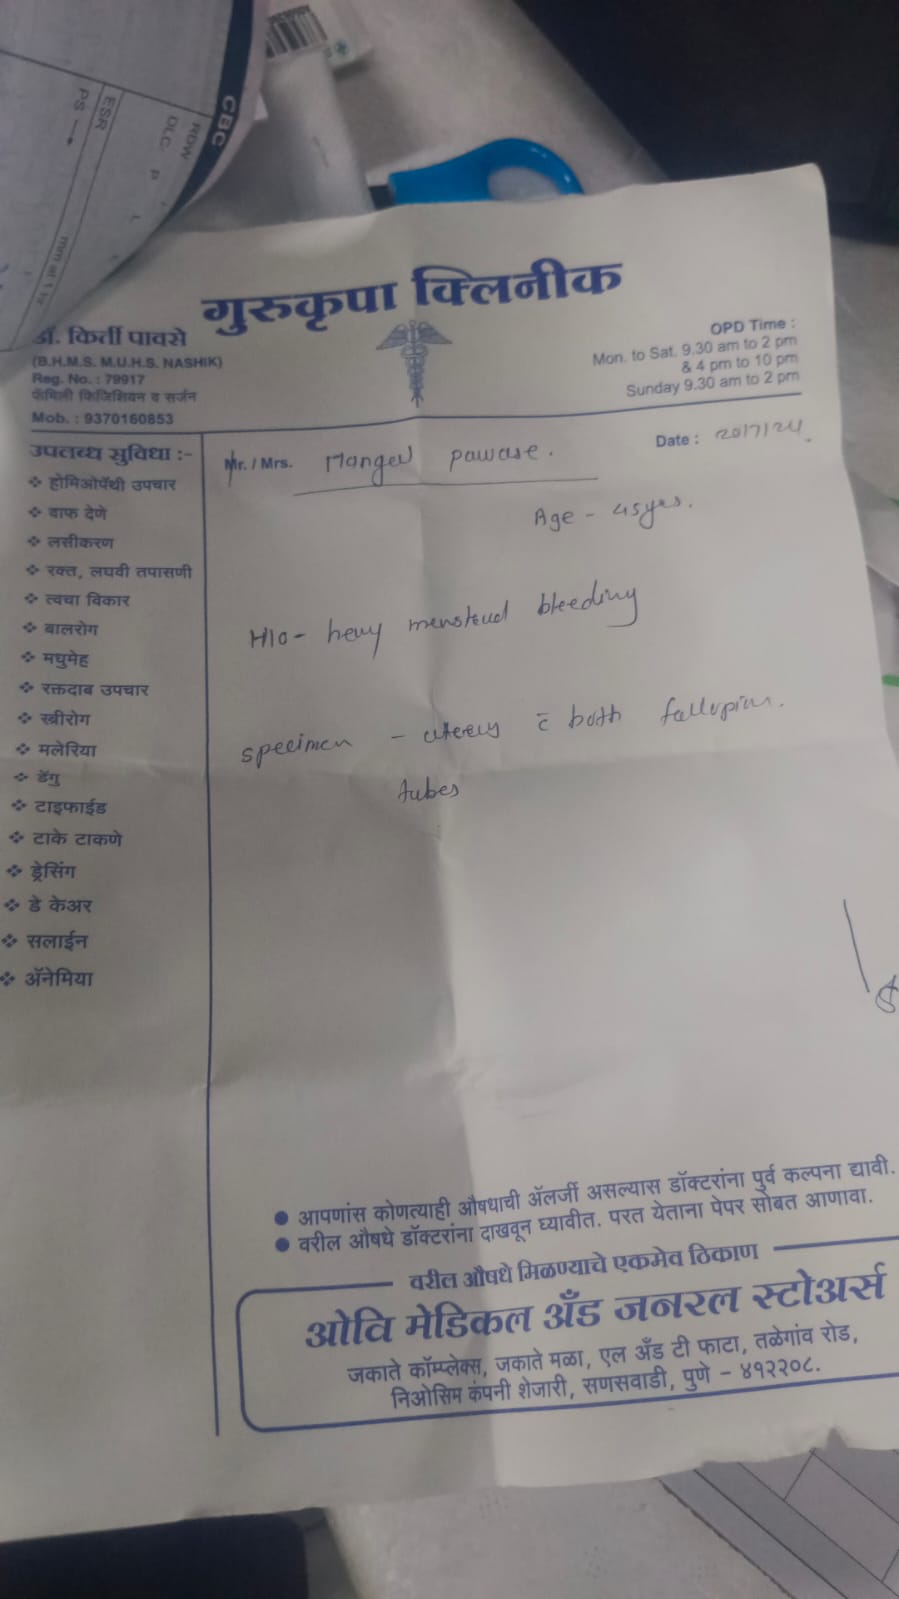 CBC
RDW
DLC P L
ESR mm at 1 hr
PS →
गुरुकृपा क्लिनीक
डॉ. किर्ती पावसे
(B.H.M.S. M.U.H.S. NASHIK)
Reg. No. : 79917
फॅमिली फिजिशियन व सर्जन
Mob. : 9370160853
OPD Time :
Mon. to Sat. 9.30 am to 2 pm
& 4 pm to 10 pm
Sunday 9.30 am to 2 pm
Mr. / Mrs. Mangal pawase.
Date : 20/7/24.
Age - 45yrs.
H/o - hevy menstrual bleeding
specimen - uterus c̄ both fallopian.
tubes
उपलब्ध सुविधा :-
❖ होमिओपॅथी उपचार
❖ वाफ देणे
❖ लसीकरण
❖ रक्त, लघवी तपासणी
❖ त्वचा विकार
❖ बालरोग
❖ मधुमेह
❖ रक्तदाब उपचार
❖ स्त्रीरोग
❖ मलेरिया
❖ डेंगु
❖ टाइफाईड
❖ टाके टाकणे
❖ ड्रेसिंग
❖ डे केअर
❖ सलाईन
❖ ॲनेमिया
● आपणांस कोणत्याही औषधाची ॲलर्जी असल्यास डॉक्टरांना पुर्व कल्पना द्यावी.
● वरील औषधे डॉक्टरांना दाखवून घ्यावीत. परत येताना पेपर सोबत आणावा.
वरील औषधे मिळण्याचे एकमेव ठिकाण
ओवि मेडिकल अँड जनरल स्टोअर्स
जकाते कॉम्प्लेक्स, जकाते मळा, एल अँड टी फाटा, तळेगांव रोड,
निओसिम कंपनी शेजारी, सणसवाडी, पुणे - ४१२२०८.